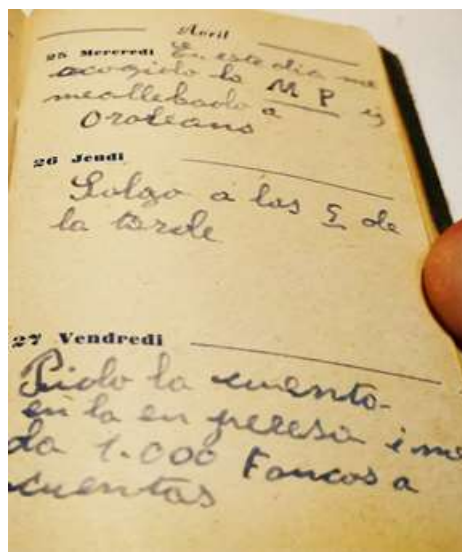 Avril
25 Mercredi En este dia me
acogido la M P y
meallebado a
Oraleans
26 Jeudi
Salgo a las 5 de
la tarde
27 Vendredi
Pido la cuenta
en la en peresa i me
da 1.000 Fancos a
cuentas